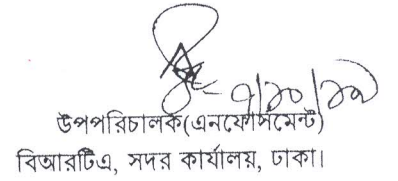 উপপরিচালক(এনফোর্সমেন্ট)
বিআরটিএ, সদর কার্যালয়, ঢাকা।